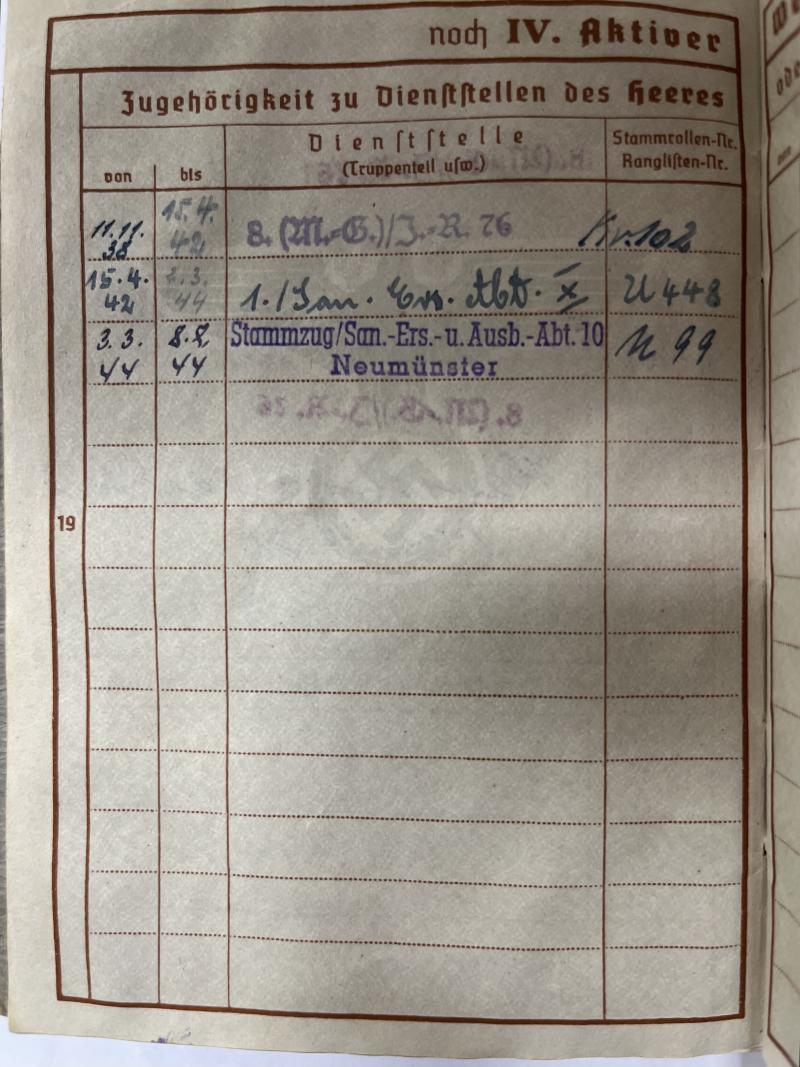 noch IV. Aktiver
Zugehörigkeit zu Dienststellen des Heeres
von
bis
Dienststelle
(Truppenteil usw.)
Stammrollen-Nr.
Ranglisten-Nr.
11.11.
38
15.4.
42
8. (M.-G.)/J.-R. 76
Kr. 102
15.4.
42
2.3.
44
1./San. Ers. Abt. X
U 448
3.3.
44
8.8.
44
Stammzug/San.-Ers.-u. Ausb.-Abt. 10
Neumünster
N 99
19